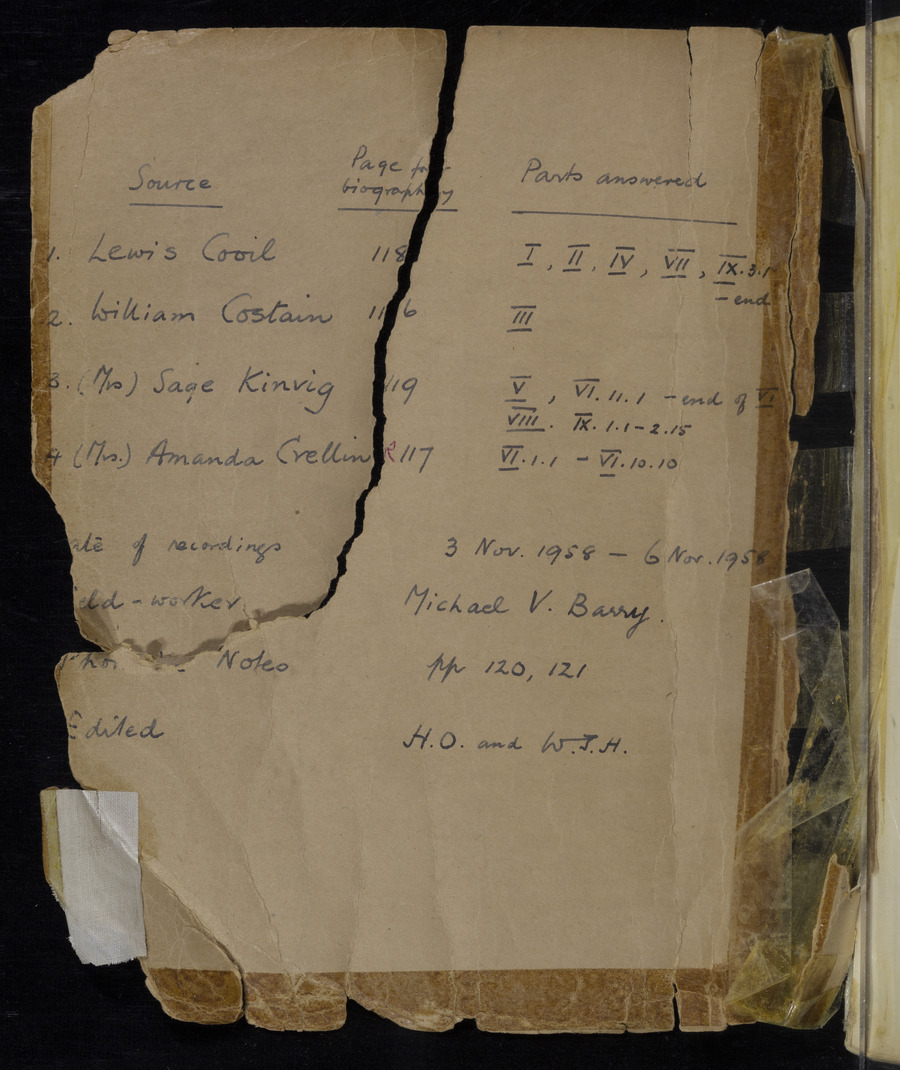 Page for
Source biography Parts answered
1. Lewis Cooil 118 I, II, IV, VII, IX.3.1
- end
2. William Costain 116 III
3. (Mrs) Sage Kinvig 119 V, VI.11.1 - end of VI
VIII. IX.1.1-2.15
4 (Mrs.) Amanda Crellin R 117 VI.1.1 - VI.10.10
ate of recordings 3 Nov. 1958 - 6 Nov. 1958
eld-worker Michael V. Barry.
Notes pp 120, 121
Edited H.O. and W.J.H.